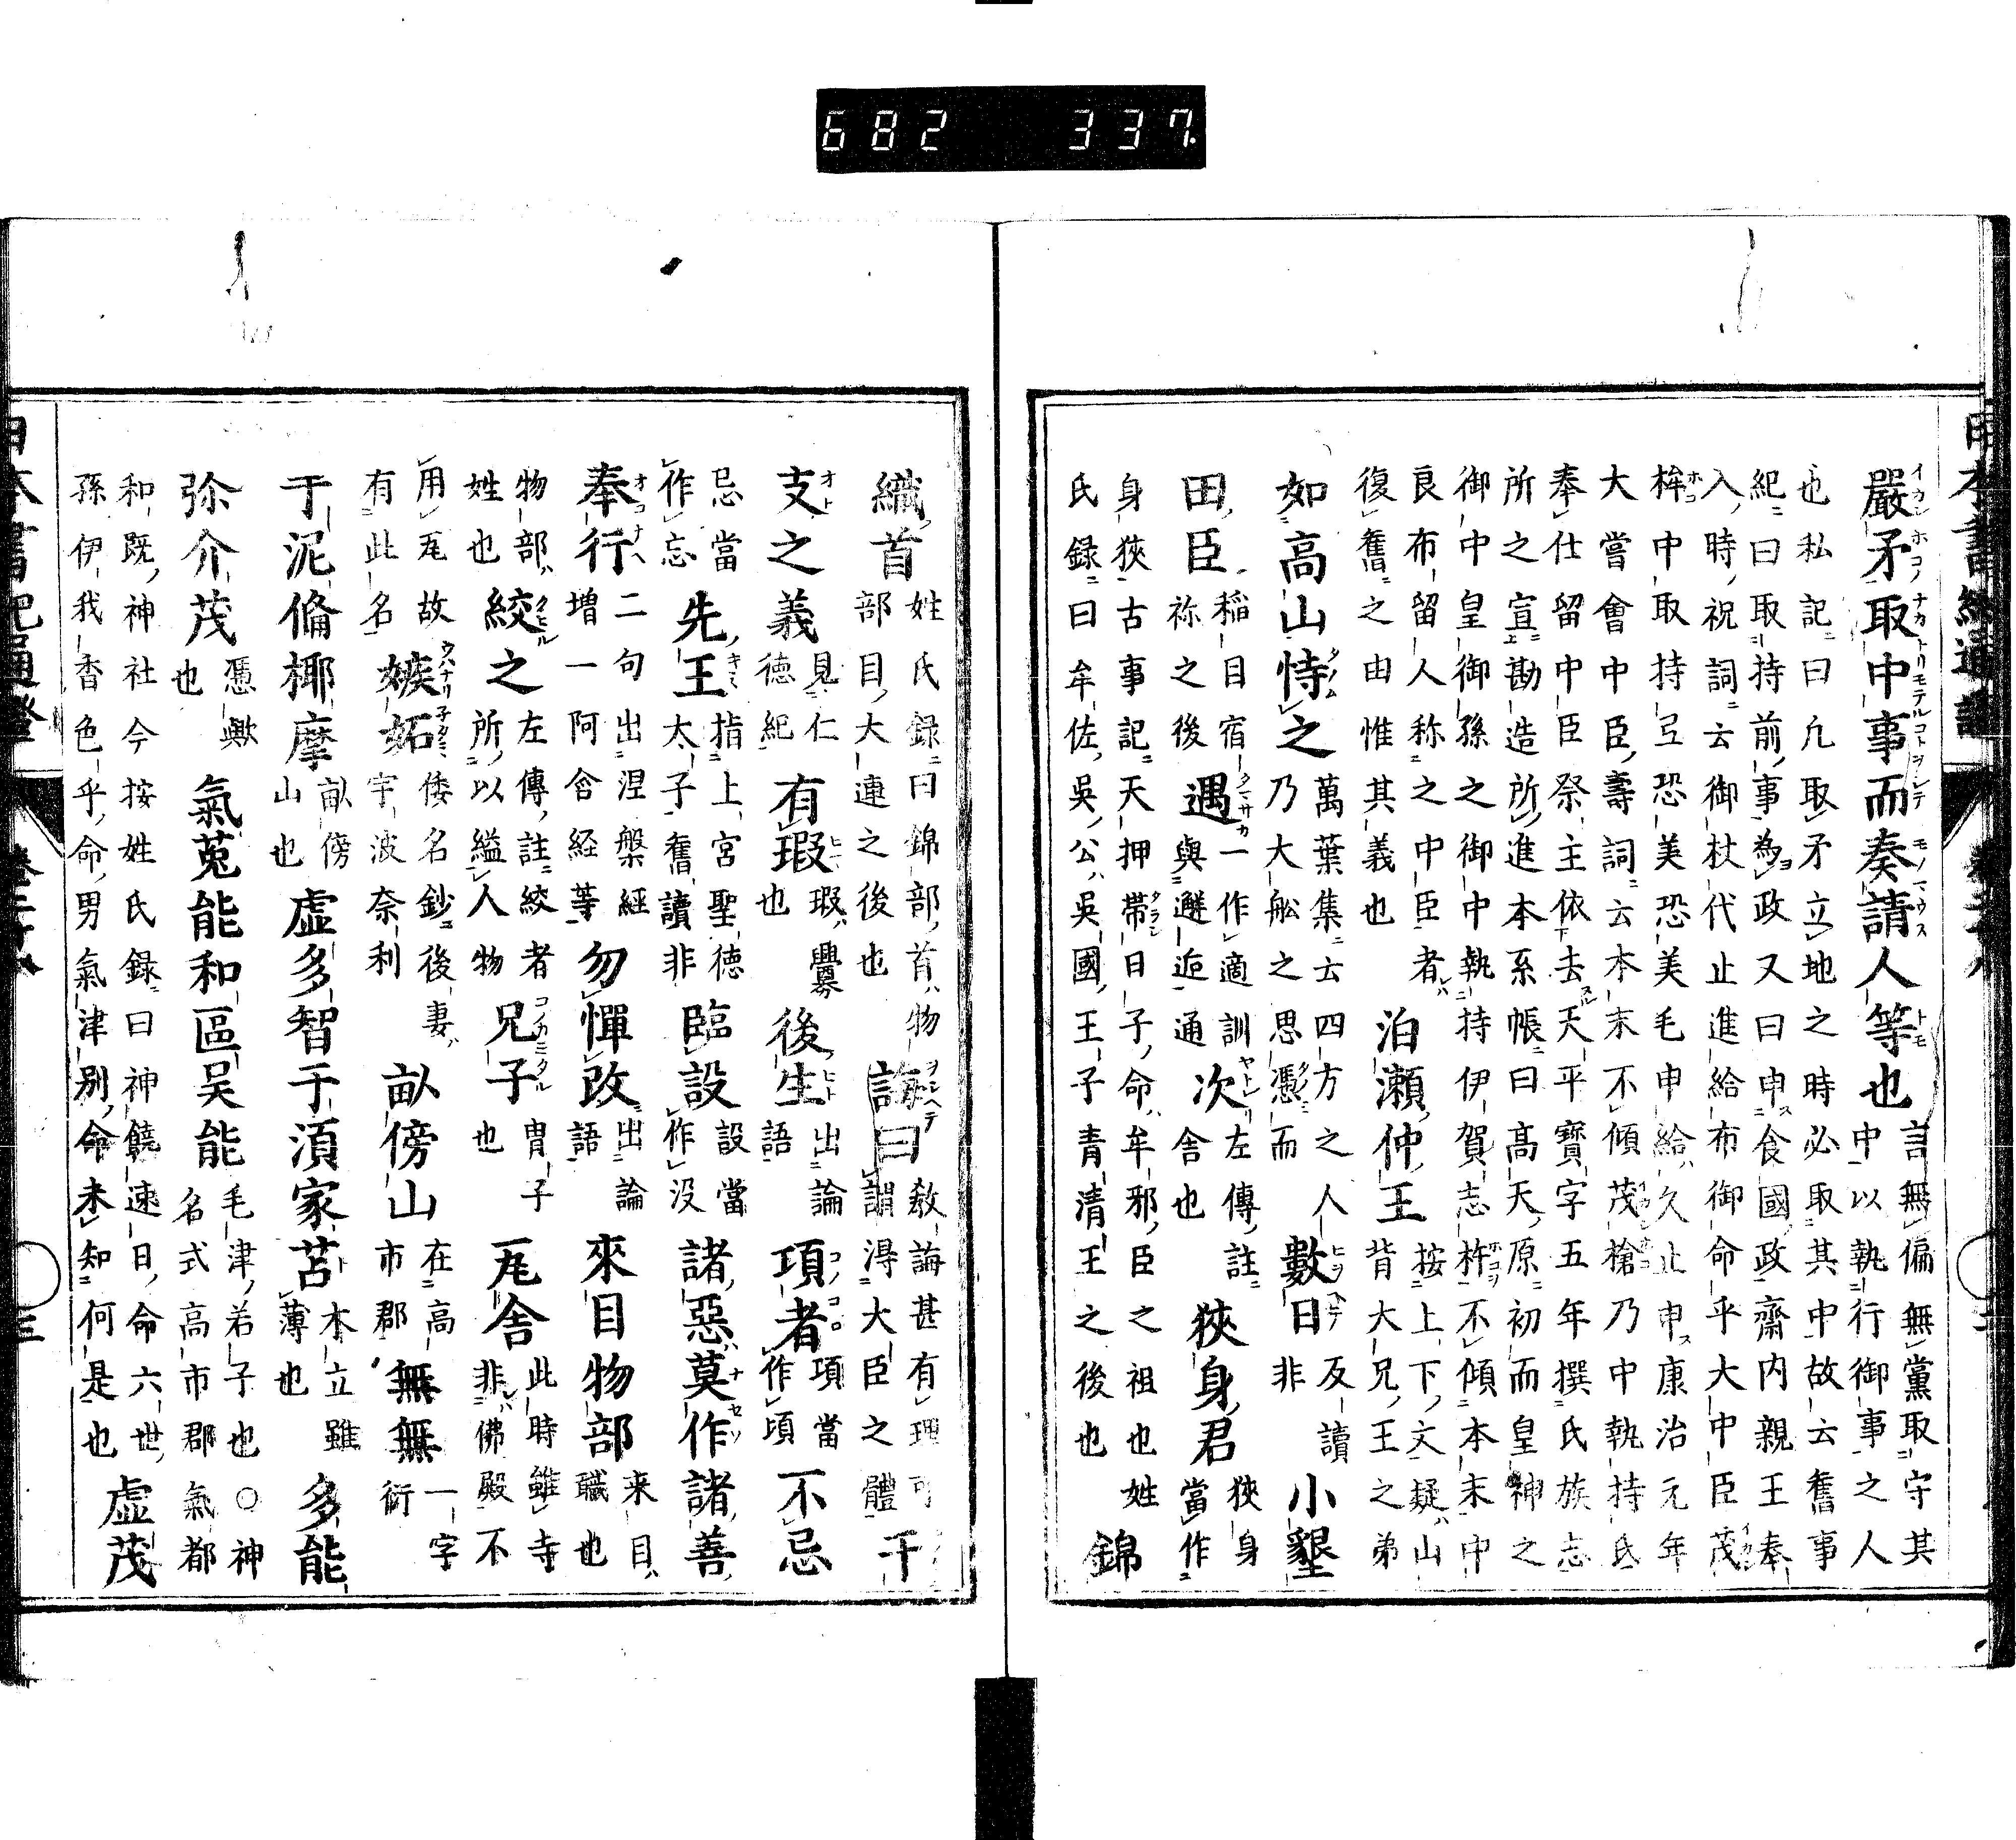 日本書紀通證
嚴矛取中事而奏請人等也
言無偏無黨取守其
中以執行御事之人
也私記曰凢取矛立地之時必取其中故云奮事
紀曰取持前事為政又曰申食國政齋内親王奉
入時祝詞云御杖代止進給布御命乎大中臣茂
桙中取持弖恐美恐美毛申給久止申康治元年
大嘗會中臣壽詞云本末不傾茂槍乃中執持氐
奉仕留中臣祭主依去天平寶字五年撰氏族志
所之宣勘造所進本系帳曰高天原初而皇神之
御中皇御孫之御中執持伊賀志桙不傾本末中
良布留人称之中臣者
復奮之由惟其義也
泊瀬仲王
按上下文疑山
背大兄王之弟
如高山恃之
萬葉集云四方之人
乃大舩之思憑而
數日
反讀
非
小墾
田臣
稲目宿
祢之後
遇
一作適訓
與邂逅通
次
左傳註
舍也
狹身君
狹身
當作
身狹古事記天押帶日子命牟邪臣之祖也姓
氏録曰牟佐呉公呉國王子青清王之後也
錦
織首
姓氏録曰錦部首物
部目大連之後也
誨曰
教誨甚有理可
謂得大臣之體
干
支之義
見仁
德紀
有瑕
瑕釁
也
後生
出論
語
項者
項當
作頃
不忌
忌當
作忘
先王
指上宮聖德
太子奮讀非
臨設
設當
作没
諸惡莫作諸善
奉行
二句出涅槃經
増一阿含経等
勿憚改
出論
語
來目物部
来目
職也
物部
姓也
絞之
左傳註絞者
所以縊人物
兄子
冑子
也
㼚舍
此時雖寺
非佛殿不
用㼚故
有此名
嫉妬
倭名鈔後妻
宇波奈利
畝傍山
在高
市郡
無無
一字
衍
于泥備椰摩
畝傍
山也
虚多智于湏家苫
木立雖
薄也
多能
弥介茂
憑歟
也
氣菟能和區呉能
毛津若子也〇神
名式高市郡氣都
和既神社今按姓氏録曰神饒速日命六世
孫伊我香色乎命男氣津別命未知何是也
虚茂
三
682 337